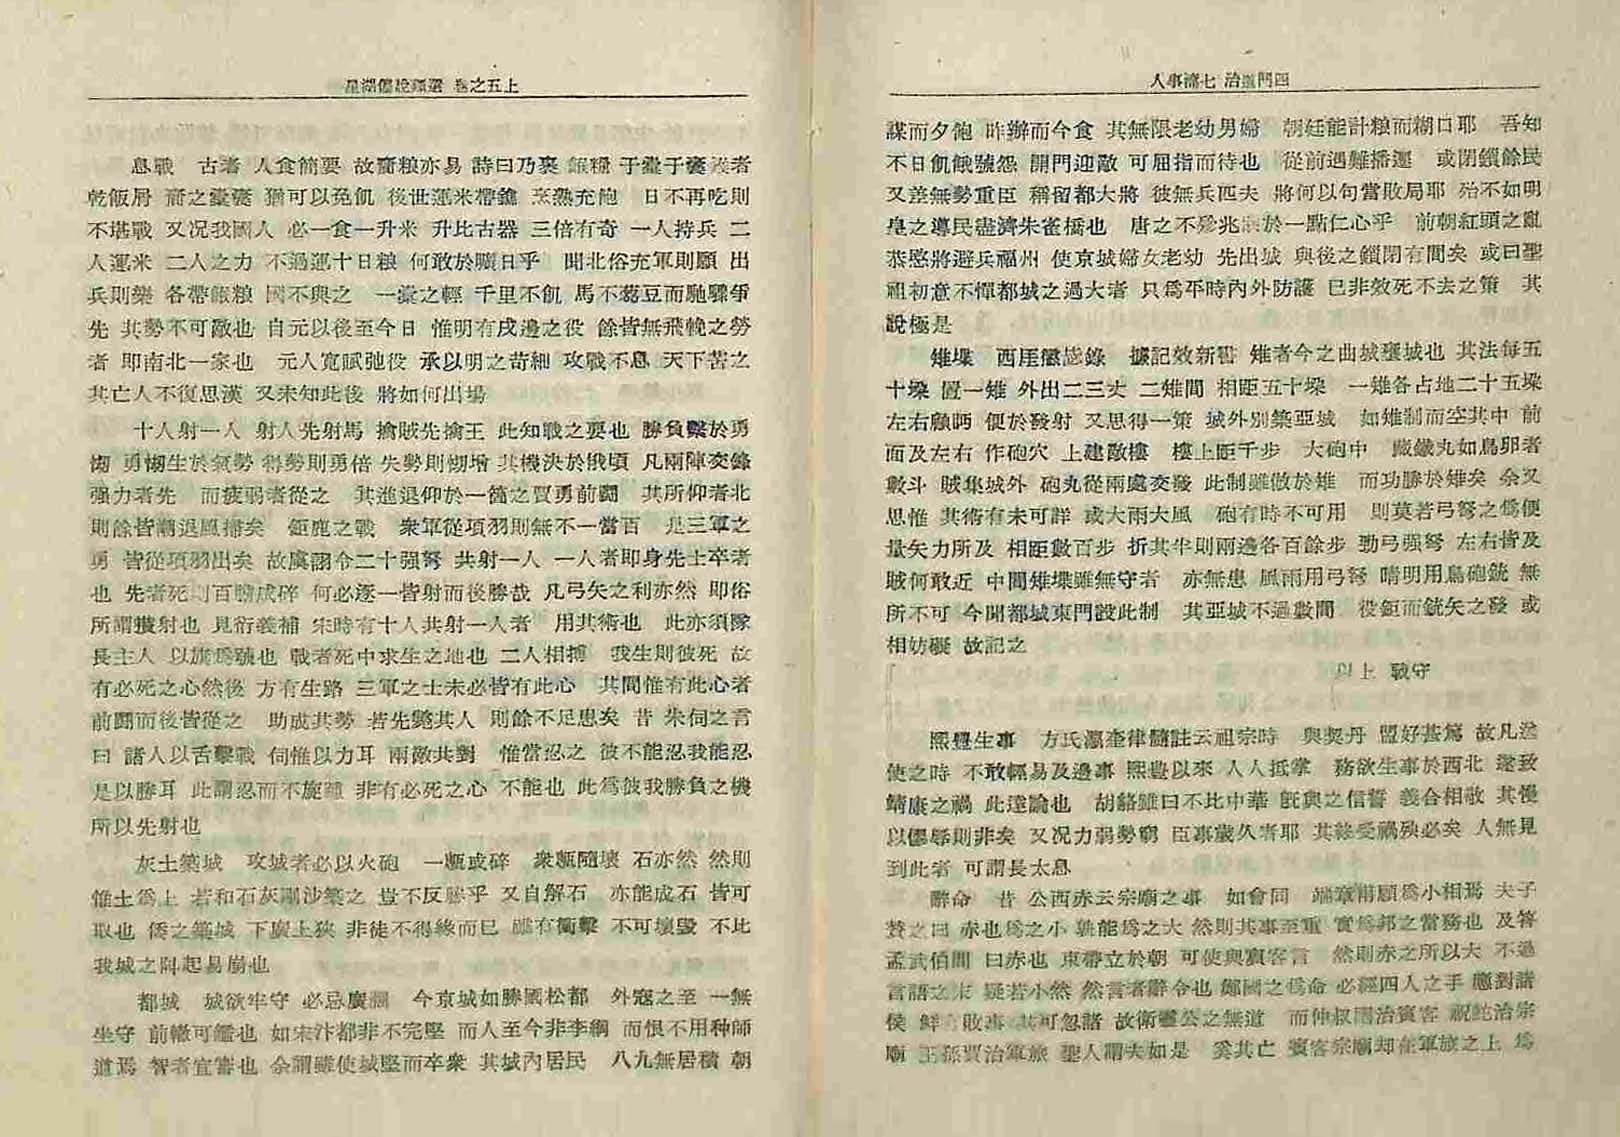 星湖僿說類選 卷之五上
息戰 古者 人食簡要 故齎粮亦易 詩曰乃裹 餱糧 于橐于囊 餱者
乾飯屑 齎之橐囊 猶可以免飢 後世運米帶鑊 烹熟充飽 日不再吃則
不堪戰 又况我國人 必一食一升米 升比古器 三倍有奇 一人持兵 二
人運米 二人之力 不過運十日粮 何敢於曠日乎 聞北俗充軍則願 出
兵則樂 各帶餱粮 國不與之 一橐之輕 千里不飢 馬不蒭豆而馳驟爭
先 其勢不可敵也 自元以後至今日 惟明有戍邊之役 餘皆無飛輓之勞
者 即南北一家也 元人寬賦弛役 承以明之苛細 攻戰不息 天下苦之
其亡人不復思漢 又未知此後 將如何出場
十人射一人 射人先射馬 擒賊先擒王 此知戰之要也 勝負繫於勇
㥘 勇㥘生於氣勢 得勢則勇倍 失勢則㥘增 其機決於俄頃 凡兩陣交鋒
强力者先 而疲弱者從之 其進退仰於一箇之賈勇前鬪 其所仰者北
則餘皆潮退風掃矣 鉅鹿之戰 衆軍從項羽則無不一當百 是三軍之
勇 皆從項羽出矣 故虞詡令二十强弩 共射一人 一人者即身先士卒者
也 先者死則百體成碎 何必逐一皆射而後勝哉 凡弓矢之利亦然 即俗
所謂攅射也 見衍義補 宋時有十人共射一人者 用其術也 此亦須隊
長主人 以旗爲號也 戰者死中求生之地也 二人相搏 我生則彼死 故
有必死之心然後 方有生路 三軍之士未必皆有此心 其間惟有此心者
前鬪而後皆從之 助成其勢 若先斃其人 則餘不足患矣 昔 朱伺之言
曰 諸人以舌擊戰 伺惟以力耳 兩敵共對 惟當忍之 彼不能忍我能忍
是以勝耳 此謂忍而不旋踵 非有必死之心 不能也 此爲彼我勝負之機
所以先射也
灰土築城 攻城者必以火砲 一甎或碎 衆甎隨壞 石亦然 然則
惟土爲上 若和石灰剛沙築之 豈不反勝乎 又自解石 亦能成石 皆可
取也 倭之築城 下廣上狹 非徒不得緣而已 雖有衝擊 不可壞毁 不比
我城之陡起易崩也
都城 城欲牢守 必忌廣濶 今京城如勝國松都 外寇之至 一無
坐守 前轍可鑑也 如宋汴都非不完堅 而人至今非李綱 而恨不用种師
道焉 智者宜審也 余謂雖使城堅而卒衆 其城內居民 八九無居積 朝
人事篇七 治道門四
謀而夕飽 昨辦而今食 其無限老幼男婦 朝廷能計粮而糊口耶 吾知
不日飢餓號怨 開門迎敵 可屈指而待也 從前遇難播遷 或閉鎖餘民
又差無勢重臣 稱留都大將 彼無兵匹夫 將何以句當敗局耶 殆不如明
皇之導民盡濟朱雀橋也 唐之不殄兆於一點仁心乎 前朝紅頭之亂
恭愍將避兵福州 使京城婦女老幼 先出城 與後之鎖閉有間矣 或曰聖
祖初意不憚都城之過大者 只爲平時內外防護 已非效死不去之策 其
說極是
雉堞 西厓懲毖錄 據記效新書 雉者今之曲城甕城也 其法每五
十垜 置一雉 外出二三丈 二雉間 相距五十垜 一雉各占地二十五垜
左右顧眄 便於發射 又思得一策 城外別築亞城 如雉制而空其中 前
面及左右 作砲穴 上建敵樓 樓上距千步 大砲中 藏鐵丸如鳥卵者
數斗 賊集城外 砲丸從兩處交發 此制雖倣於雉 而功勝於雉矣 余又
思惟 其術有未可詳 或大雨大風 砲有時不可用 則莫若弓弩之爲便
量矢力所及 相距數百步 折其半則兩邊各百餘步 勁弓强弩 左右皆及
賊何敢近 中間雉堞雖無守者 亦無患 風雨用弓弩 晴明用鳥砲銃 無
所不可 今聞都城東門設此制 其亞城不過數間 役鉅而銃矢之發 或
相妨礙 故記之
以上 戰守
熙豊生事 方氏瀛奎律髓註云祖宗時 與契丹 盟好甚篤 故凡淦
使之時 不敢輕易及邊事 熙豊以來 人人抵掌 務欲生事於西北 遂致
靖康之禍 此達論也 胡貉雖曰不比中華 旣與之信誓 義合相敬 其慢
以僇辱則非矣 又况力弱勢窮 臣事歲久者耶 其終受禍殃必矣 人無見
到此者 可謂長太息
辭命 昔 公西赤云宗廟之事 如會同 端章甫願爲小相焉 夫子
贊之曰 赤也爲之小 孰能爲之大 然則其事至重 實爲邦之當務也 及答
孟武伯問 曰赤也 束帶立於朝 可使與賓客言 然則赤之所以大 不過
言語之末 疑若小然 然言者辭令也 鄭國之爲命 必經四人之手 應對諸
侯 鮮有敗事 其可忽諸 故衛靈公之無道 而仲叔圉治賓客 祝鮀治宗
廟 王孫賈治軍旅 聖人謂夫如是 奚其亡 賓客宗廟却在軍旅之上 爲